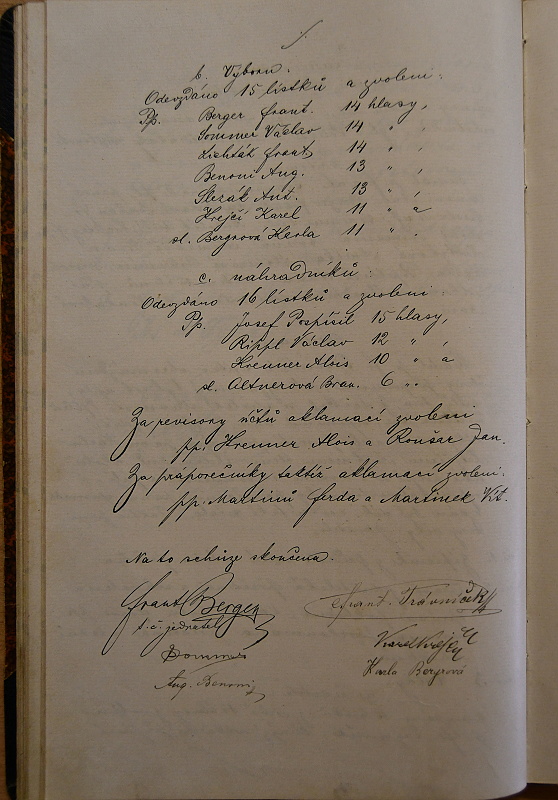 b. Výboru.
Odevzdáno 15 lístků a zvoleni:
Pp. Berger Frant. 14 hlasy,
Sommer Václav 14 " ,
Lichták Frant. 14 " ,
Benoni Aug. 13 " ,
Slezák Ant. 13 " ,
Krejčí Karel 11 " a
sl. Bergrová Karla 11 " .
c. náhradníků:
Odevzdáno 16 lístků a zvoleni:
Pp. Josef Pospíšil 15 hlasy,
Rippl Václav 12 " ,
Krenner Alois 10 " a
sl. Altnerová Bran. 6 " .
Za revisory účtů aklamací zvoleni
pp. Krenner Alois a Roušar Jan.
Za práporečníky taktéž aklamací zvoleni:
pp. Martinů Ferda a Martinek Vít.
Na to schůze skončena.
Frant. Berger Frant. Trávníček
t. č. jednatel
Sommer Karel Krejčí
Aug. Benoni Karla Bergrová